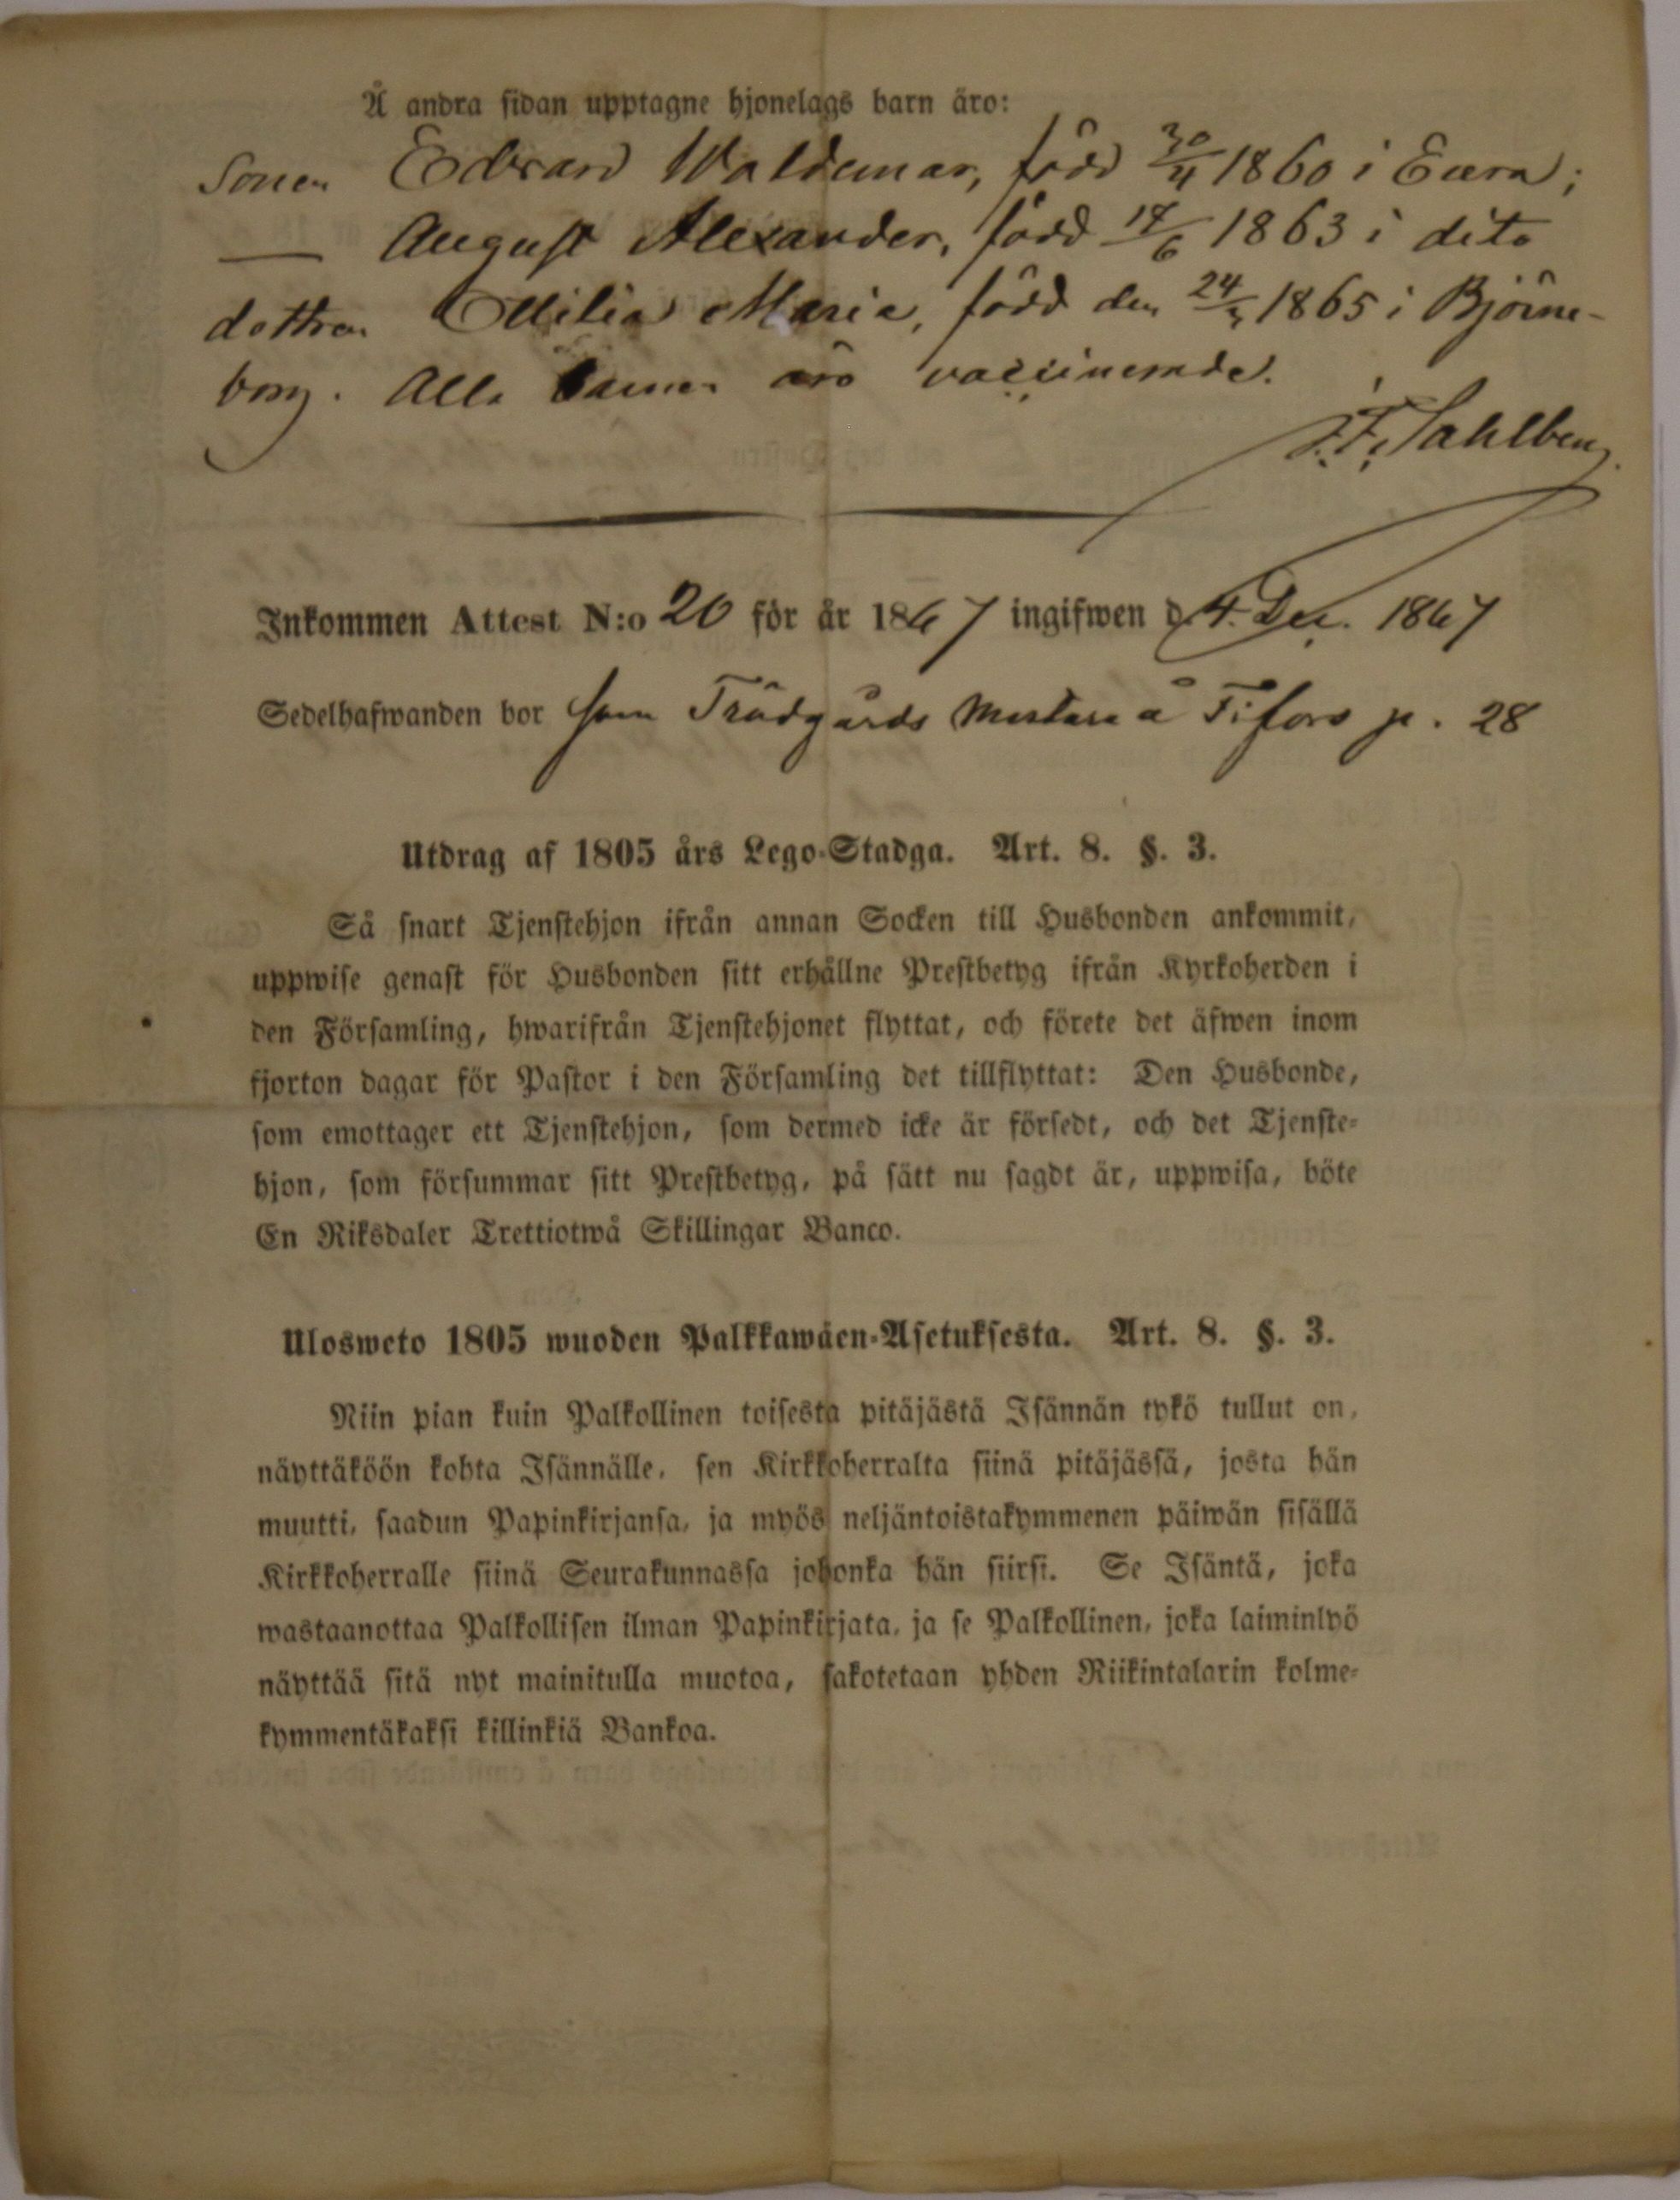 Å andra sidan upptagne hjonelags barn äro:
Sonen Edvard Waldemar, född 30/4 1860 i Eura;
— August Alexander, född 17/6 1863 i dito
dottren Emilia Maria, född den 24/3 1865 i Björne-
borg. Alla barnen äro vaccinerade.
F. Sahlberg
Inkommen Attest N:o 20 för år 1867 ingifwen d. 4. Dec. 1867
Sedelhafwanden bor som Trädgårds Mästare å Fiskars p. 28
Utdrag af 1805 års Lego-Stadga. Art. 8. §. 3.
Så snart Tjenstehjon ifrån annan Socken till Husbonden ankommit,
uppwise genast för Husbonden sitt erhållne Prestbetyg ifrån Kyrkoherden i
den Församling, hwarifrån Tjenstehjonet flyttat, och förete det äfwen inom
fjorton dagar för Pastor i den Församling det tillflyttat: Den Husbonde,
som emottager ett Tjenstehjon, som dermed icke är försedt, och det Tjenste-
hjon, som försummar sitt Prestbetyg, på sätt nu sagdt är, uppwisa, böte
En Riksdaler Trettiotwå Skillingar Banco.
Ulosweto 1805 wuoden Palkkawäen-Asetuksesta. Art. 8. §. 3.
Niin pian kuin Palkollinen toisesta pitäjästä Isännän tykö tullut on,
näyttäköön kohta Isännälle, sen Kirkkoherralta siinä pitäjässä, josta hän
muutti, saadun Papinkirjansa, ja myös neljäntoistakymmenen päiwän sisällä
Kirkkoherralle siinä Seurakunnassa johonka hän siirsi. Se Isäntä, joka
wastaanottaa Palkollisen ilman Papinkirjata, ja se Palkollinen, joka laiminlyö
näyttää sitä nyt mainitulla muotoa, sakotetaan yhden Riikintalarin kolme-
kymmentäkaksi killinkiä Bankoa.